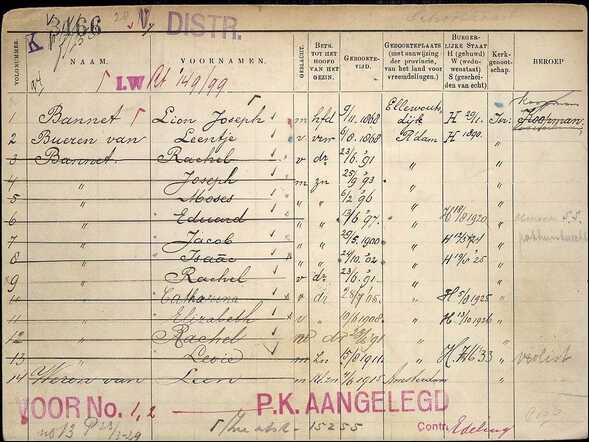 K 3466 N DISTR.
VOLGNUMMER. NAAM. VOORNAMEN. GESLACHT. BETR. TOT HET HOOFD VAN HET GEZIN. GEBOORTETIJD. GEBOORTEPLAATS (met aanwijzing der provincie, en van het land voor vreemdelingen.) BURGERLIJKE STAAT H (gehuwd) W (weduwenstaat) S (gescheiden van echt) Kerkgenootschap. BEROEP
I.W Rt 149/99.
1 Bannet Lion Joseph m hfd 9/11 1868 Ellewoutsdijk H 29/11 Isr. Koopman
2 Bueren van Leentje v vrw 1868 Rdam 1890
3 Bannet Rachel v dr 23/6 '91
4 " Joseph m zn 25/9 '93 "
5 " Moses " " 6/2 '96 "
6 " Eduard " " '97 " 1920
7 " Jacob " " 29/5 1900 " H
8 " Isaäc " " 24/10 '02 " H '25
9 " Rachel v dr 23/6 '91 "
" Catharina " H 5/8 1925 "
11 " Elizabeth " " 10/6 1908 " H 1926 "
12 " Rachel dr '91
13 " Levie m zn 1911 " H '33 "
14 Weren van Leon m 1915 Amsterdam
VOOR No. 1, 2 P.K. AANGELEGD
no 13 15255 Contr. Edeling